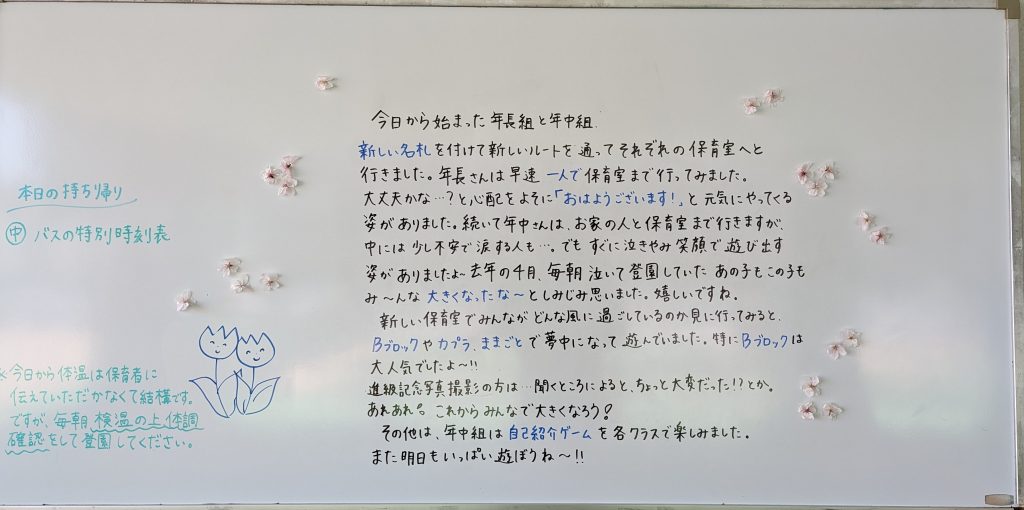 本日の持ち帰り
㊥ バスの特別時刻表
※今日から体温は保育者に
伝えていただかなくて結構です。
ですが、毎朝検温の上、体調
確認をして登園してください。
今日から始まった年長組と年中組。
新しい名札を付けて新しいルートを通ってそれぞれの保育室へと
行きました。年長さんは早速一人で保育室まで行ってみました。
大丈夫かな…?と心配をよそに「おはようございます!」と元気にやってくる
姿がありました。続いて年中さんは、お家の人と保育室まで行きますが、
中には少し不安で涙する人も…。でもすぐに泣きやみ笑顔で遊び出す
姿がありましたよ〜去年の4月、毎朝泣いて登園していたあの子もこの子も
み〜んな大きくなったな〜としみじみ思いました。嬉しいですね。
新しい保育室でみんながどんな風に過ごしているのか見に行ってみると、
Bブロックやカプラ、ままごとで夢中になって遊んでいました。特にBブロックは
大人気でしたよ〜!!
進級記念写真撮影の方は…聞くところによると、ちょっと大変だった!?とか。
あれあれ。これからみんなで大きくなろう!
その他は、年中組は自己紹介ゲームを各クラスで楽しみました。
また明日もいっぱい遊ぼうね〜!!